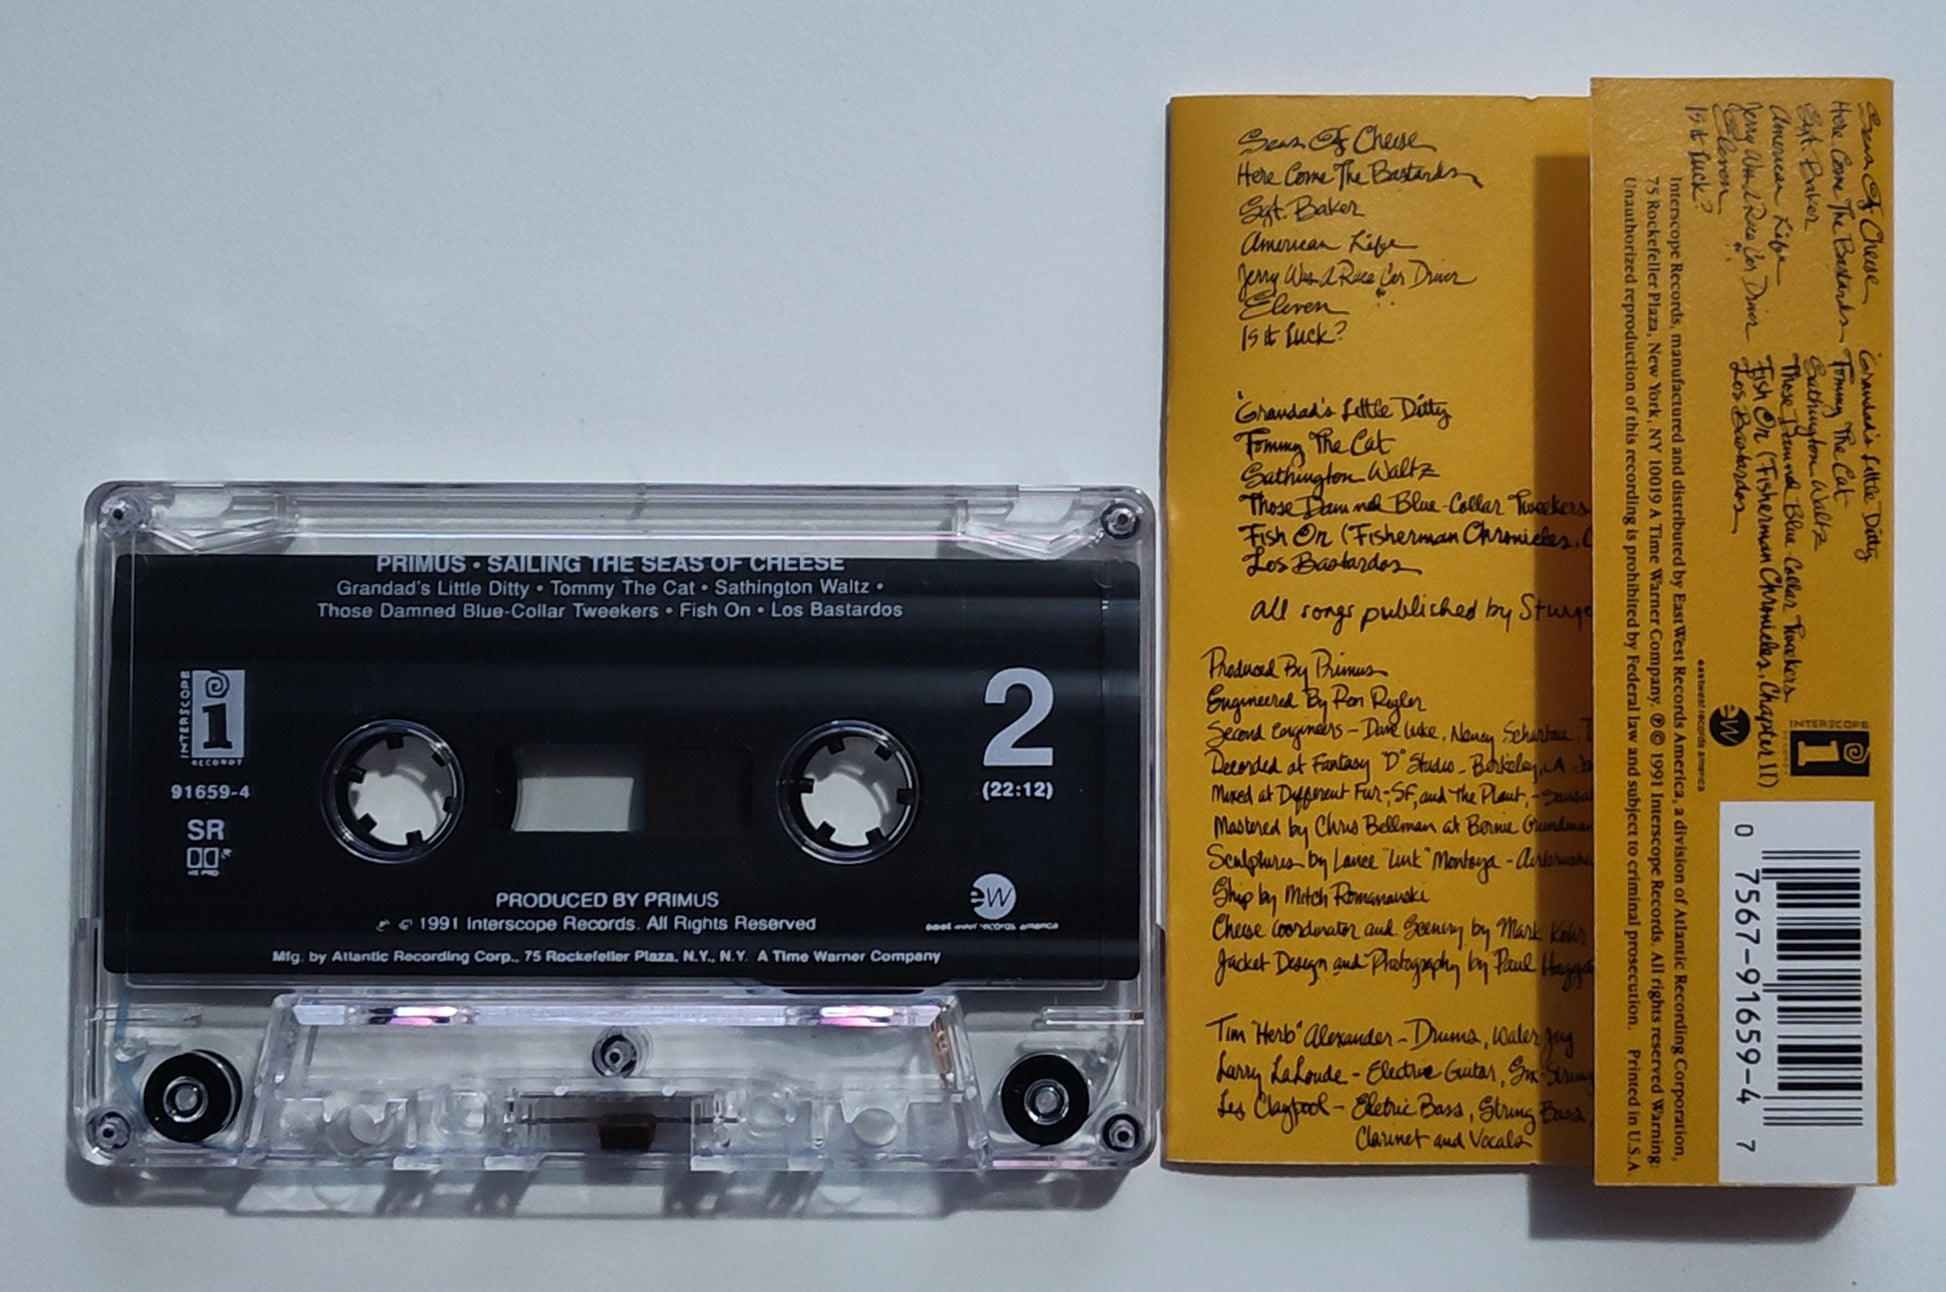 PRIMUS • SAILING THE SEAS OF CHEESE
Grandad's Little Ditty • Tommy The Cat • Sathington Waltz •
Those Damned Blue-Collar Tweekers • Fish On • Los Bastardos
INTERSCOPE
i
RECORDS
91659-4
SR
2
(22:12)
PRODUCED BY PRIMUS
℗ © 1991 Interscope Records. All Rights Reserved
ew
east west records america
Mfg. by Atlantic Recording Corp., 75 Rockefeller Plaza, N.Y., N.Y. A Time Warner Company
Seas Of Cheese
Here Come The Bastards
Sgt. Baker
American Life
Jerry Was A Race Car Driver
Eleven
Is It Luck?
Grandad's Little Ditty
Tommy The Cat
Sathington Waltz
Those Damned Blue-Collar Tweekers
Fish On (Fisherman Chronicles,
Los Bastardos
All songs published by
Produced By Primus
Engineered By Ron Rigler
Second Engineers - Dave Luke, Nancy
Recorded at Fantasy "D" Studio - Berkeley, CA
Mixed at Different Fur, SF, and The Plant, -
Mastered by Chris Bellman at Bernie Grundman
Sculptures by Lance "Link" Montoya -
Ship by Mitch Romanauski
Cheese Coordinator and Scenery by Mark Kohr
Jacket Design and Photography by Paul
Tim "Herb" Alexander - Drums, Water Jug
Larry LaLonde - Electric Guitar, Six-String
Les Claypool - Eletric Bass, String Bass,
Clarinet and Vocals
Seas Of Cheese
Here Come The Bastards
Sgt. Baker
American Life
Jerry Was A Race Car Driver
Eleven
Is It Luck?
Grandad's Little Ditty
Tommy The Cat
Sathington Waltz
Those Damned Blue-Collar Tweekers
Fish On (Fisherman Chronicles, Chapter II)
Los Bastardos
INTERSCOPE
i
RECORDS
ew
eastwest records america
Interscope Records, manufactured and distributed by EastWest Records America, a division of Atlantic Recording Corporation,
75 Rockefeller Plaza, New York, NY 10019 A Time Warner Company. ℗ © 1991 Interscope Records. All rights reserved Warning:
Unauthorized reproduction of this recording is prohibited by Federal law and subject to criminal prosecution. Printed in U.S.A.
0 7567-91659-4 7